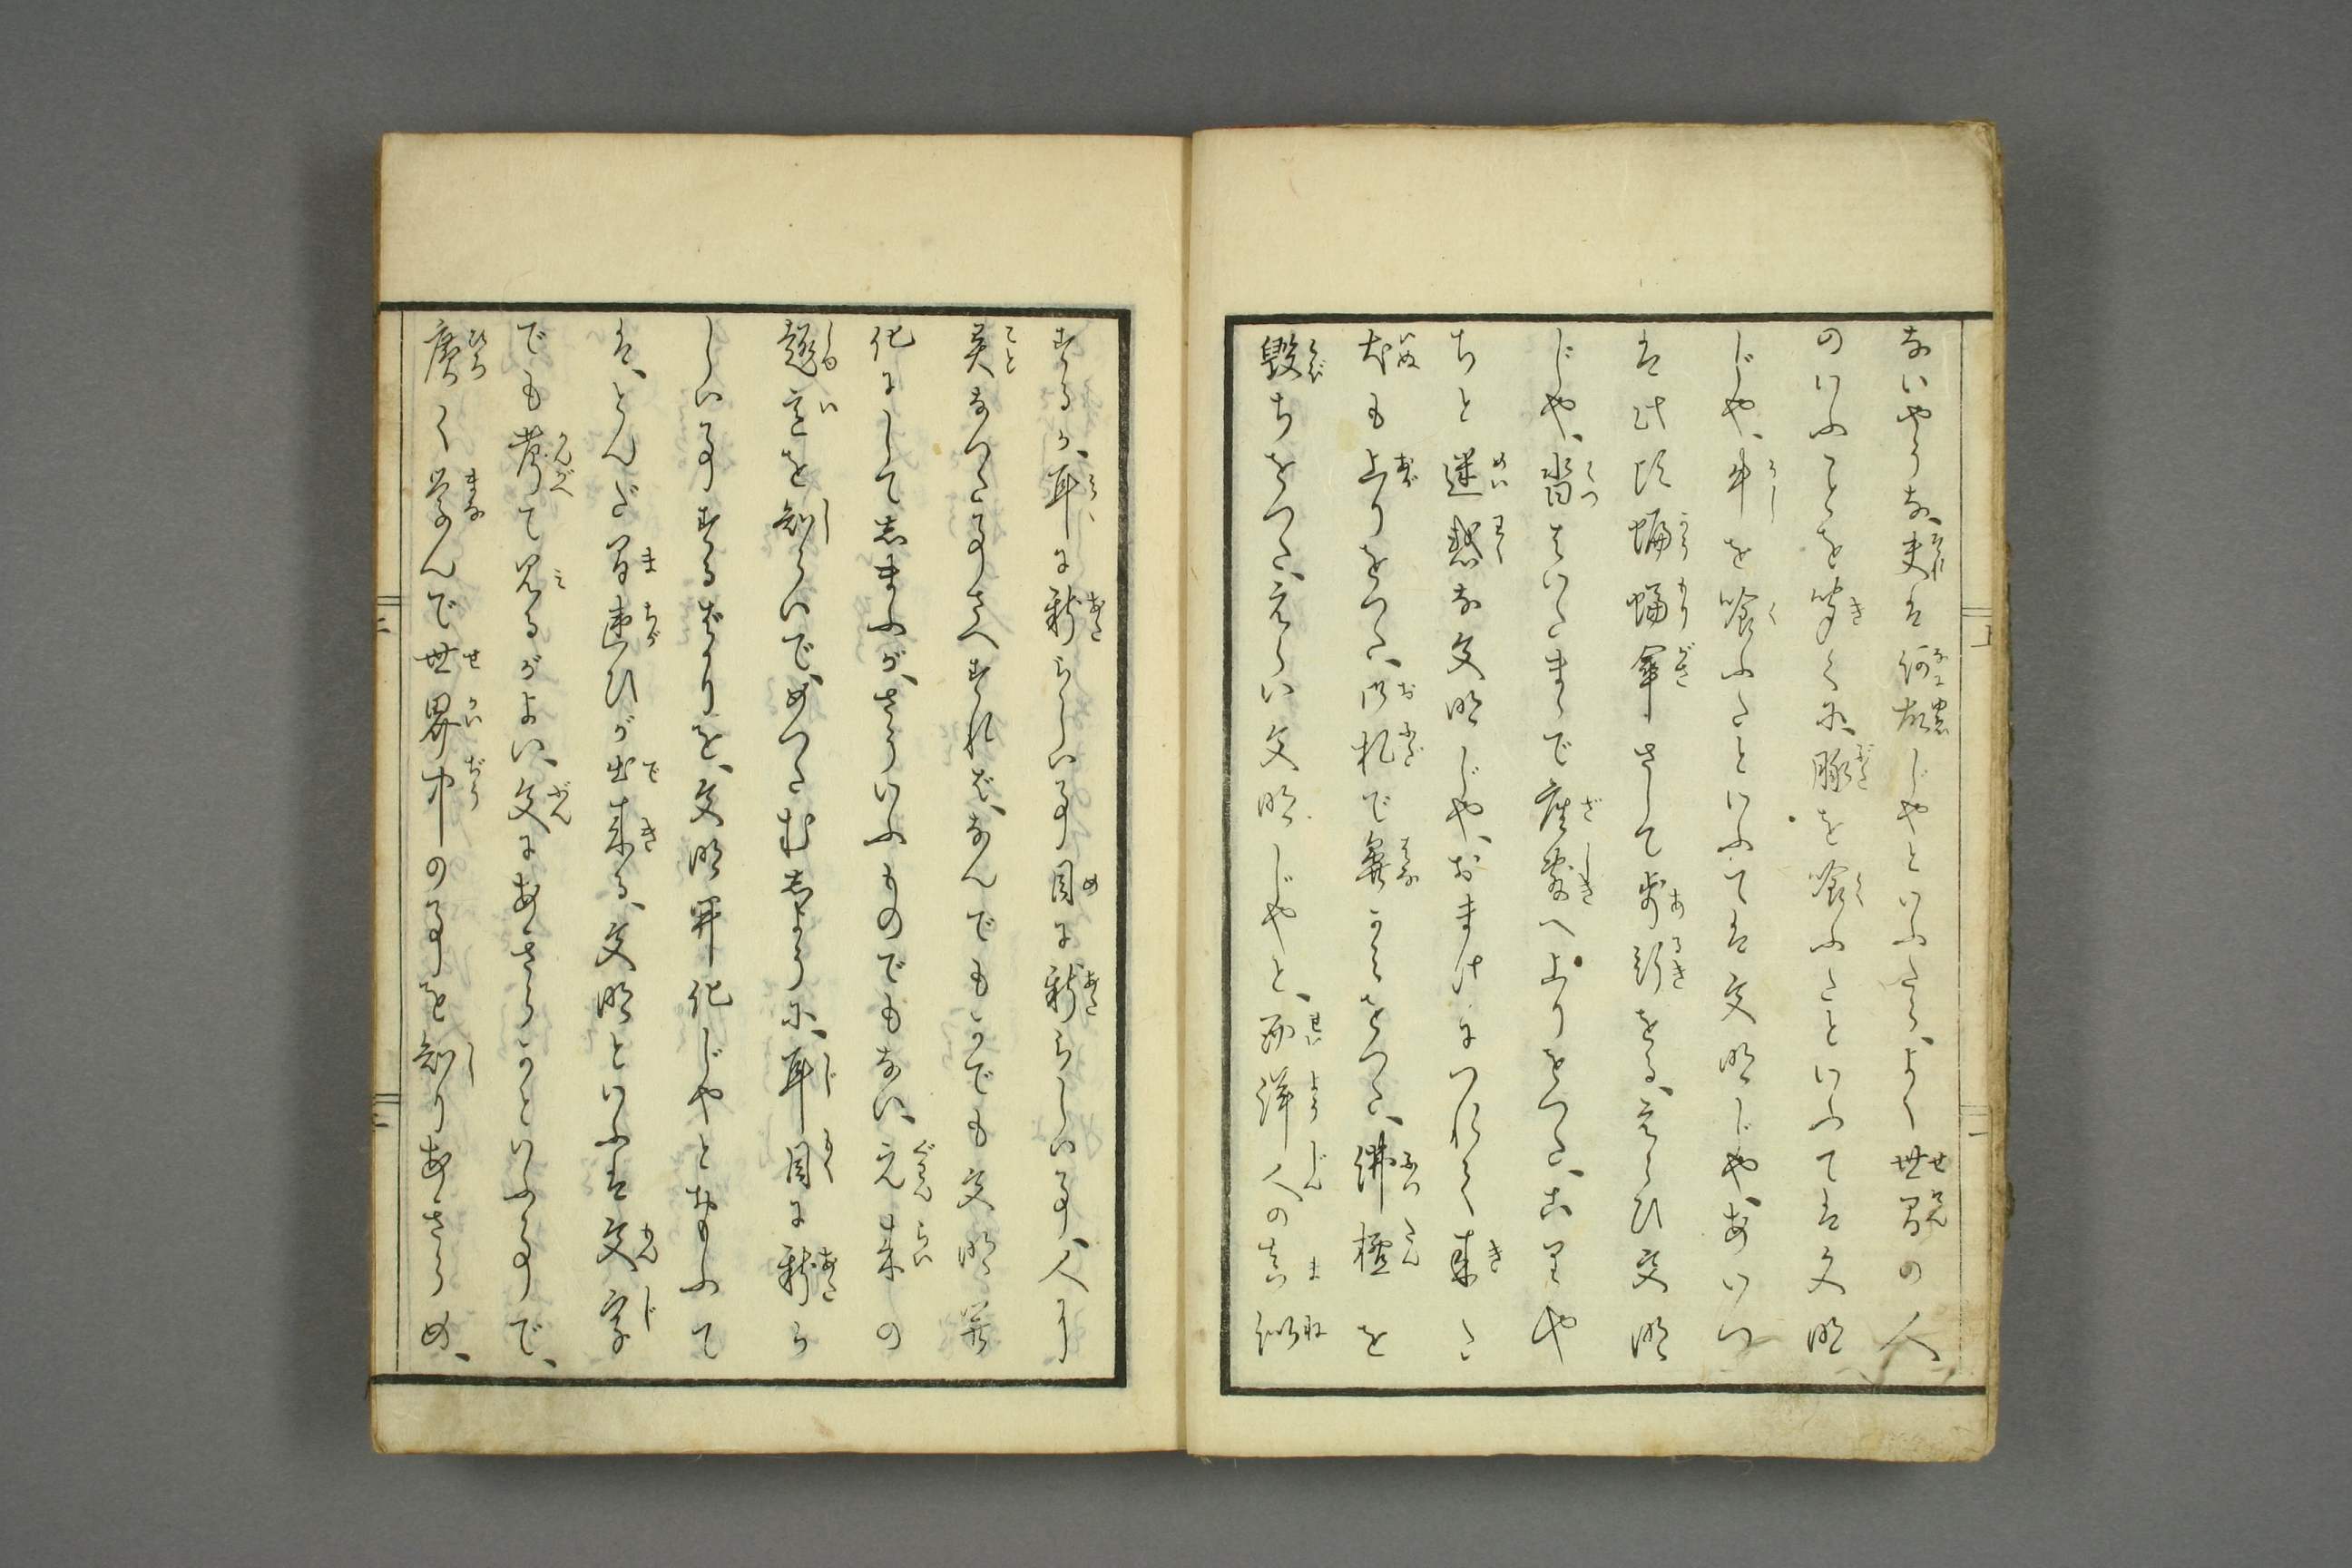 ないやうな、夫は何故じやといふたら、よく世間の人
のいふことを聞くに、豚を喰ふたといふては文明
じや、牛を喰ふたといふては文明じや、あいつ
は此頃蝙蝠傘さして歩行をる、えらひ文明
じや、沓はいたまゝで座敷へ上りをつた、こりや
ちと迷惑な文明じや、おまけにつれて来た
犬も上りをつた、御札で鼻かみをつた、佛檀を
毀ちをつた、えらい文明じやと、西洋人の真似
するか、耳に新らしい事目に新らしい事、人に
異なつた事さへすれば、なんでもかでも文明開
化にして志まふが、さういふものでもない、元来の
趣意を知らいで、めつたむ志ように、耳目に新ら
しい事するばかりを、文明開化じやとおもふて
は、とんだ間違ひが出来る、文明といふは文字
でも考て見るがよい、文にあきらかといふ事で、
廣く学んで世界中の事を知りあきらめ、